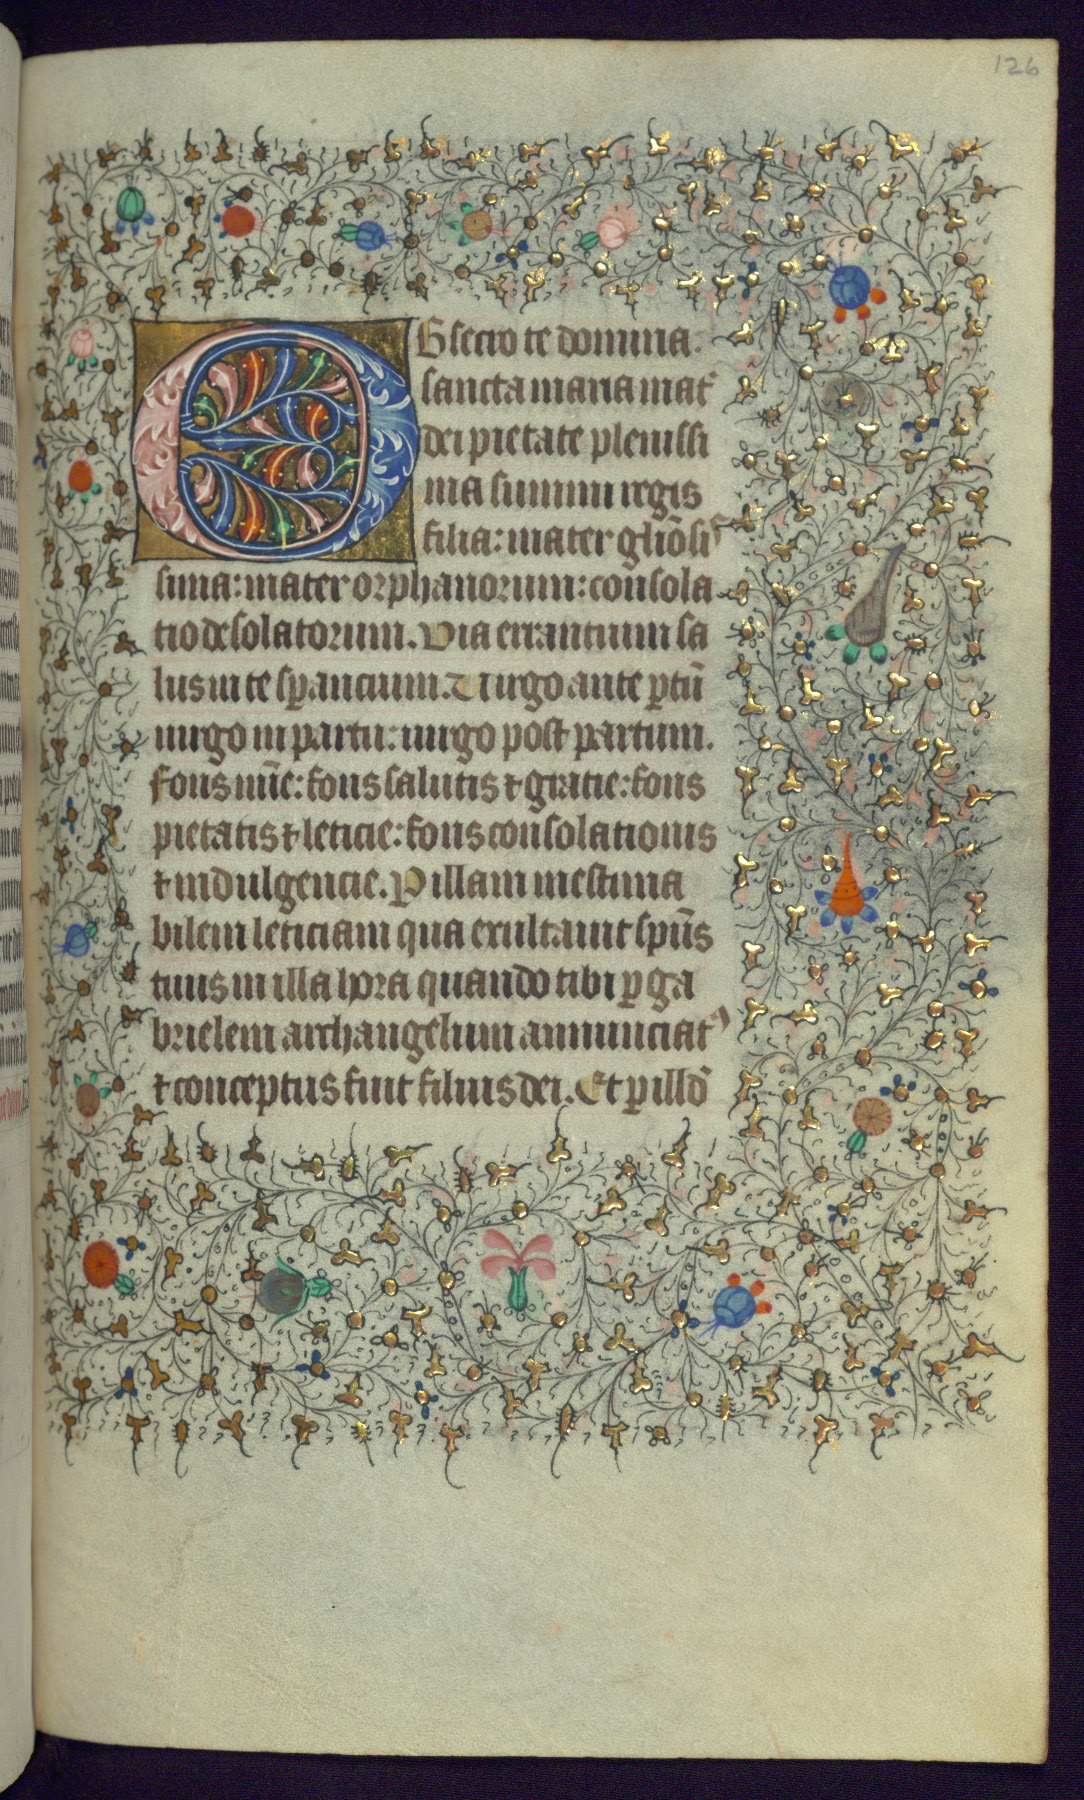 126
OBsecro te domina:
sancta maria mat᷑
dei pietate plenissi
ma summi regis
filia: mater gl̄iosis
sima: mater orphanorum: consola
tio desolatorum. Via errantium sa
lus in te sꝑancium. Uirgo ante ꝑtū
uirgo in partu: uirgo post partum.
Fons mīe: fons salutis ⁊ gratie: fons
pietatis ⁊ leticie: fons consolationis
⁊ indulgencie. Ꝑ illam inestima
bilem leticiam qua exultauit spūs
tuus in illa hora quando tibi ꝑ ga
brielem archangelum annunciat᷒
⁊ conceptus fuit filius dei. Et ꝑ illd̄